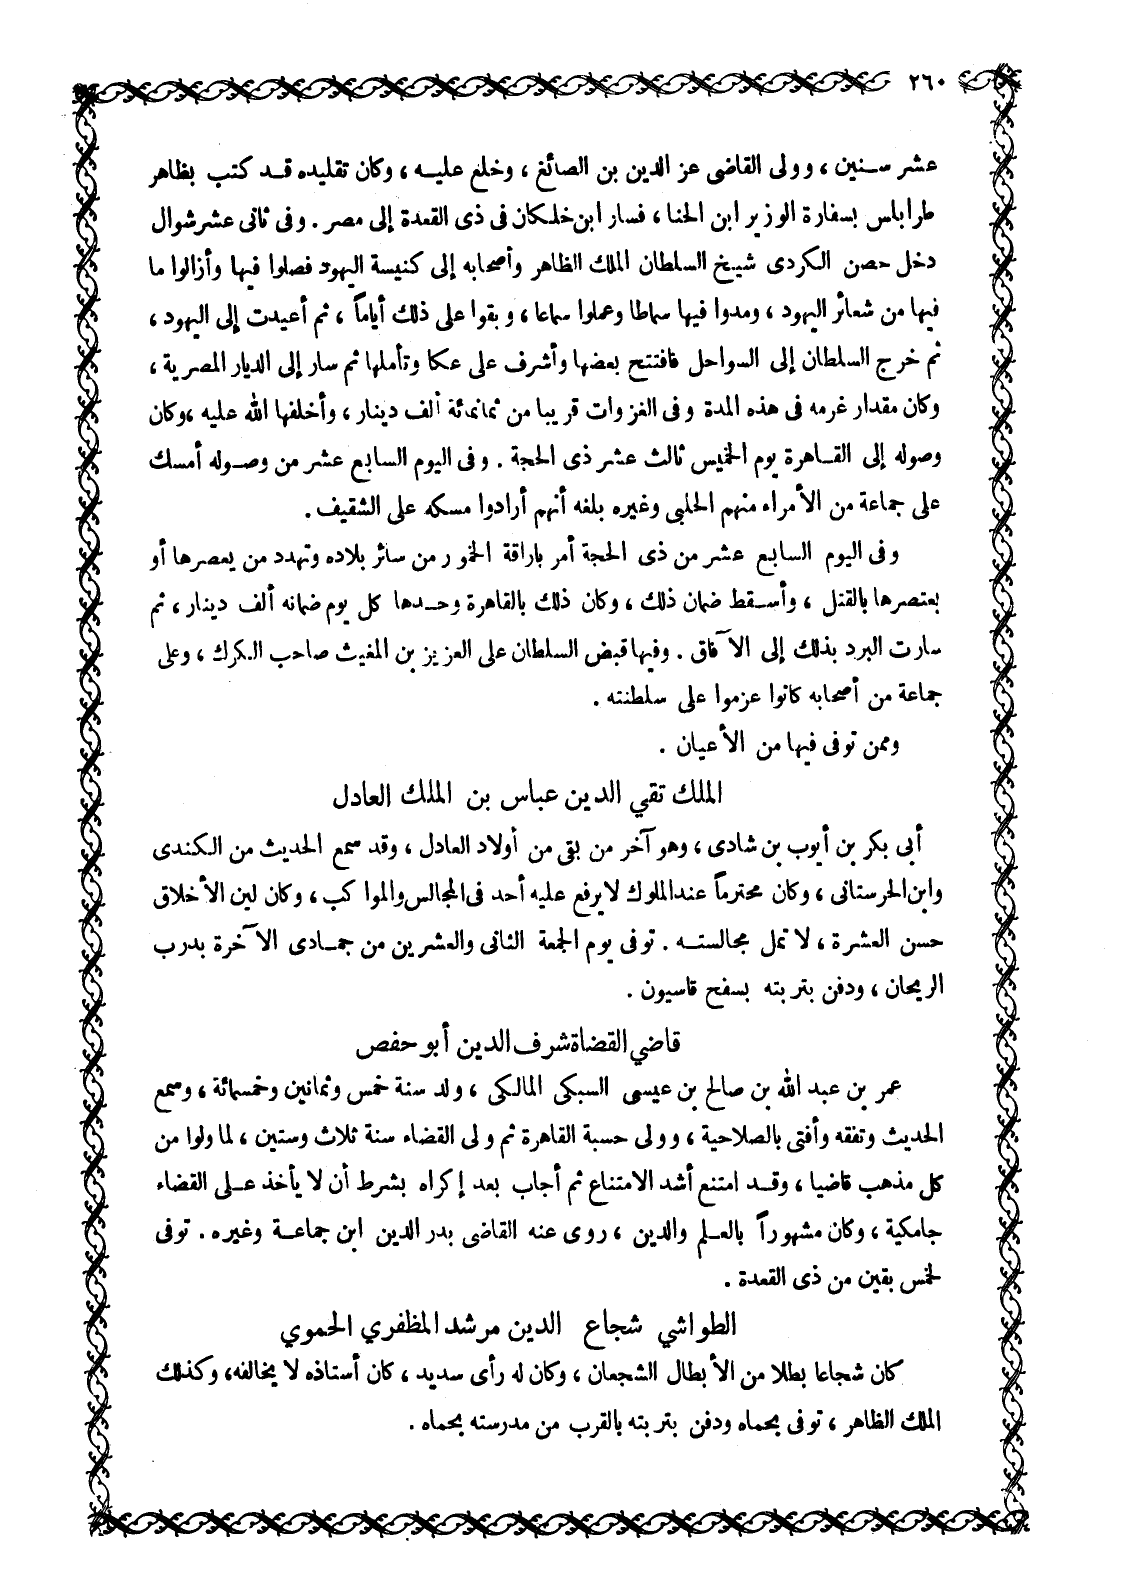 ٢٦٠
عشر سنين ، وولى القاضى عز الدين بن الصائغ ، وخلع عليه ، وكان تقليده قد كتب بظاهر
طرابلس بسفارة الوزير ابن الحنا ، فسار ابن خلكان فى ذى القعدة إلى مصر . وفى ثانى عشر شوال
دخل حصن الكردى شيخ السلطان الملك الظاهر وأصحابه إلى كنيسة اليهود فصلوا فيها وأزالوا ما
فيها من شعائر اليهود ، ومدوا فيها سماطا وعملوا سماعا ، وبقوا على ذلك أياماً ، ثم أعيدت إلى اليهود ،
ثم خرج السلطان إلى السواحل فافتتح بعضها وأشرف على عكا وتأملها ثم سار إلى الديار المصرية ،
وكان مقدار غرمه فى هذه المدة وفى الغزوات قريبا من ثمانمائة ألف دينار ، وأخلفها الله عليه ، وكان
وصوله إلى القاهرة يوم الخميس ثالث عشر ذى الحجة . وفى اليوم السابع عشر من وصوله أمسك
على جماعة من الأمراء منهم الحلبى وغيره بلغه أنهم أرادوا مسكه على الشقيف .
وفى اليوم السابع عشر من ذى الحجة أمر باراقة الخمور من سائر بلاده وتهدد من يعصرها أو
يعتصرها بالقتل ، وأسقط ضمان ذلك ، وكان ذلك بالقاهرة وحدها كل يوم ضمانه ألف دينار ، ثم
سارت البرد بذلك إلى الآفاق . وفيها قبض السلطان على العزيز بن المغيث صاحب الكرك ، وعلى
جماعة من أصحابه كانوا عزموا على سلطنته .
وممن توفى فيها من الأعيان .
الملك تقي الدين عباس بن الملك العادل
أبى بكر بن أيوب بن شادى ، وهو آخر من بقى من أولاد العادل ، وقد سمع الحديث من الكندى
وابن الحرستانى ، وكان محترماً عند الملوك لا يرفع عليه أحد فى المجالس والمواكب ، وكان لين الأخلاق
حسن العشرة ، لا تمل مجالسته . توفى يوم الجمعة الثانى والعشرين من جمادى الآخرة بدرب
الريحان ، ودفن بتربته بسفح قاسيون .
قاضي القضاة شرف الدين أبو حفص
عمر بن عبد الله بن صالح بن عيسى السبكى المالكى ، ولد سنة خمس وثمانين وخمسمائة ، وسمع
الحديث وتفقه وأفتى بالصلاحية ، وولى حسبة القاهرة ثم ولى القضاء سنة ثلاث وستين ، لما ولوا من
كل مذهب قاضيا ، وقد امتنع أشد الامتناع ثم أجاب بعد إكراه بشرط أن لا يأخذ على القضاء
جامكية ، وكان مشهوراً بالعلم والدين ، روى عنه القاضى بدر الدين ابن جماعة وغيره . توفى
لخمس بقين من ذى القعدة .
الطواشي شجاع الدين مرشد المظفري الحموي
كان شجاعا بطلا من الأبطال الشجعان ، وكان له رأى سديد ، كان أستاذه لا يخالفه، وكذلك
الملك الظاهر ، توفى بحماه ودفن بتربته بالقرب من مدرسته بحماه .